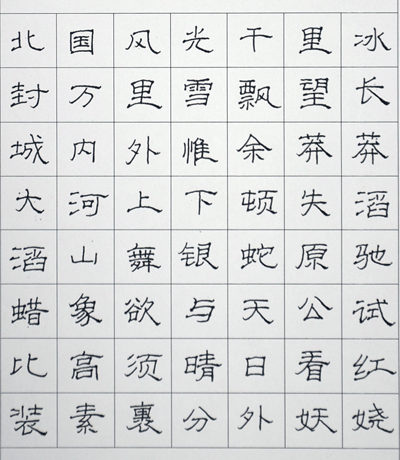 北国风光千里冰
封万里雪飘望长
城内外惟余莽莽
大河上下顿失滔
滔山舞银蛇原驰
蜡象欲与天公试
比高须晴日看红
装素裹分外妖娆